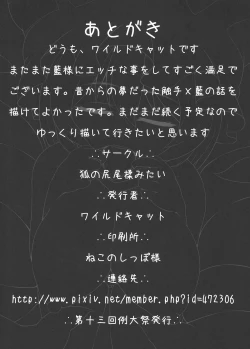 あとがき
どうも、ワイルドキャットです
またまた藍様にエッチな事をしてすごく満足で
ございます。昔からの夢だった触手×藍の話を
描けてよかったです。まだまだ続く予定なので
ゆっくり描いて行きたいと思います
∴サークル∴
狐の尻尾様みたい
∴発行者∴
ワイルドキャット
∴印刷所∴
ねこのしっぽ様
∴連絡先∴
http://www.pixiv.net/member.php?id=472306
∴第十三回例大祭発行∴